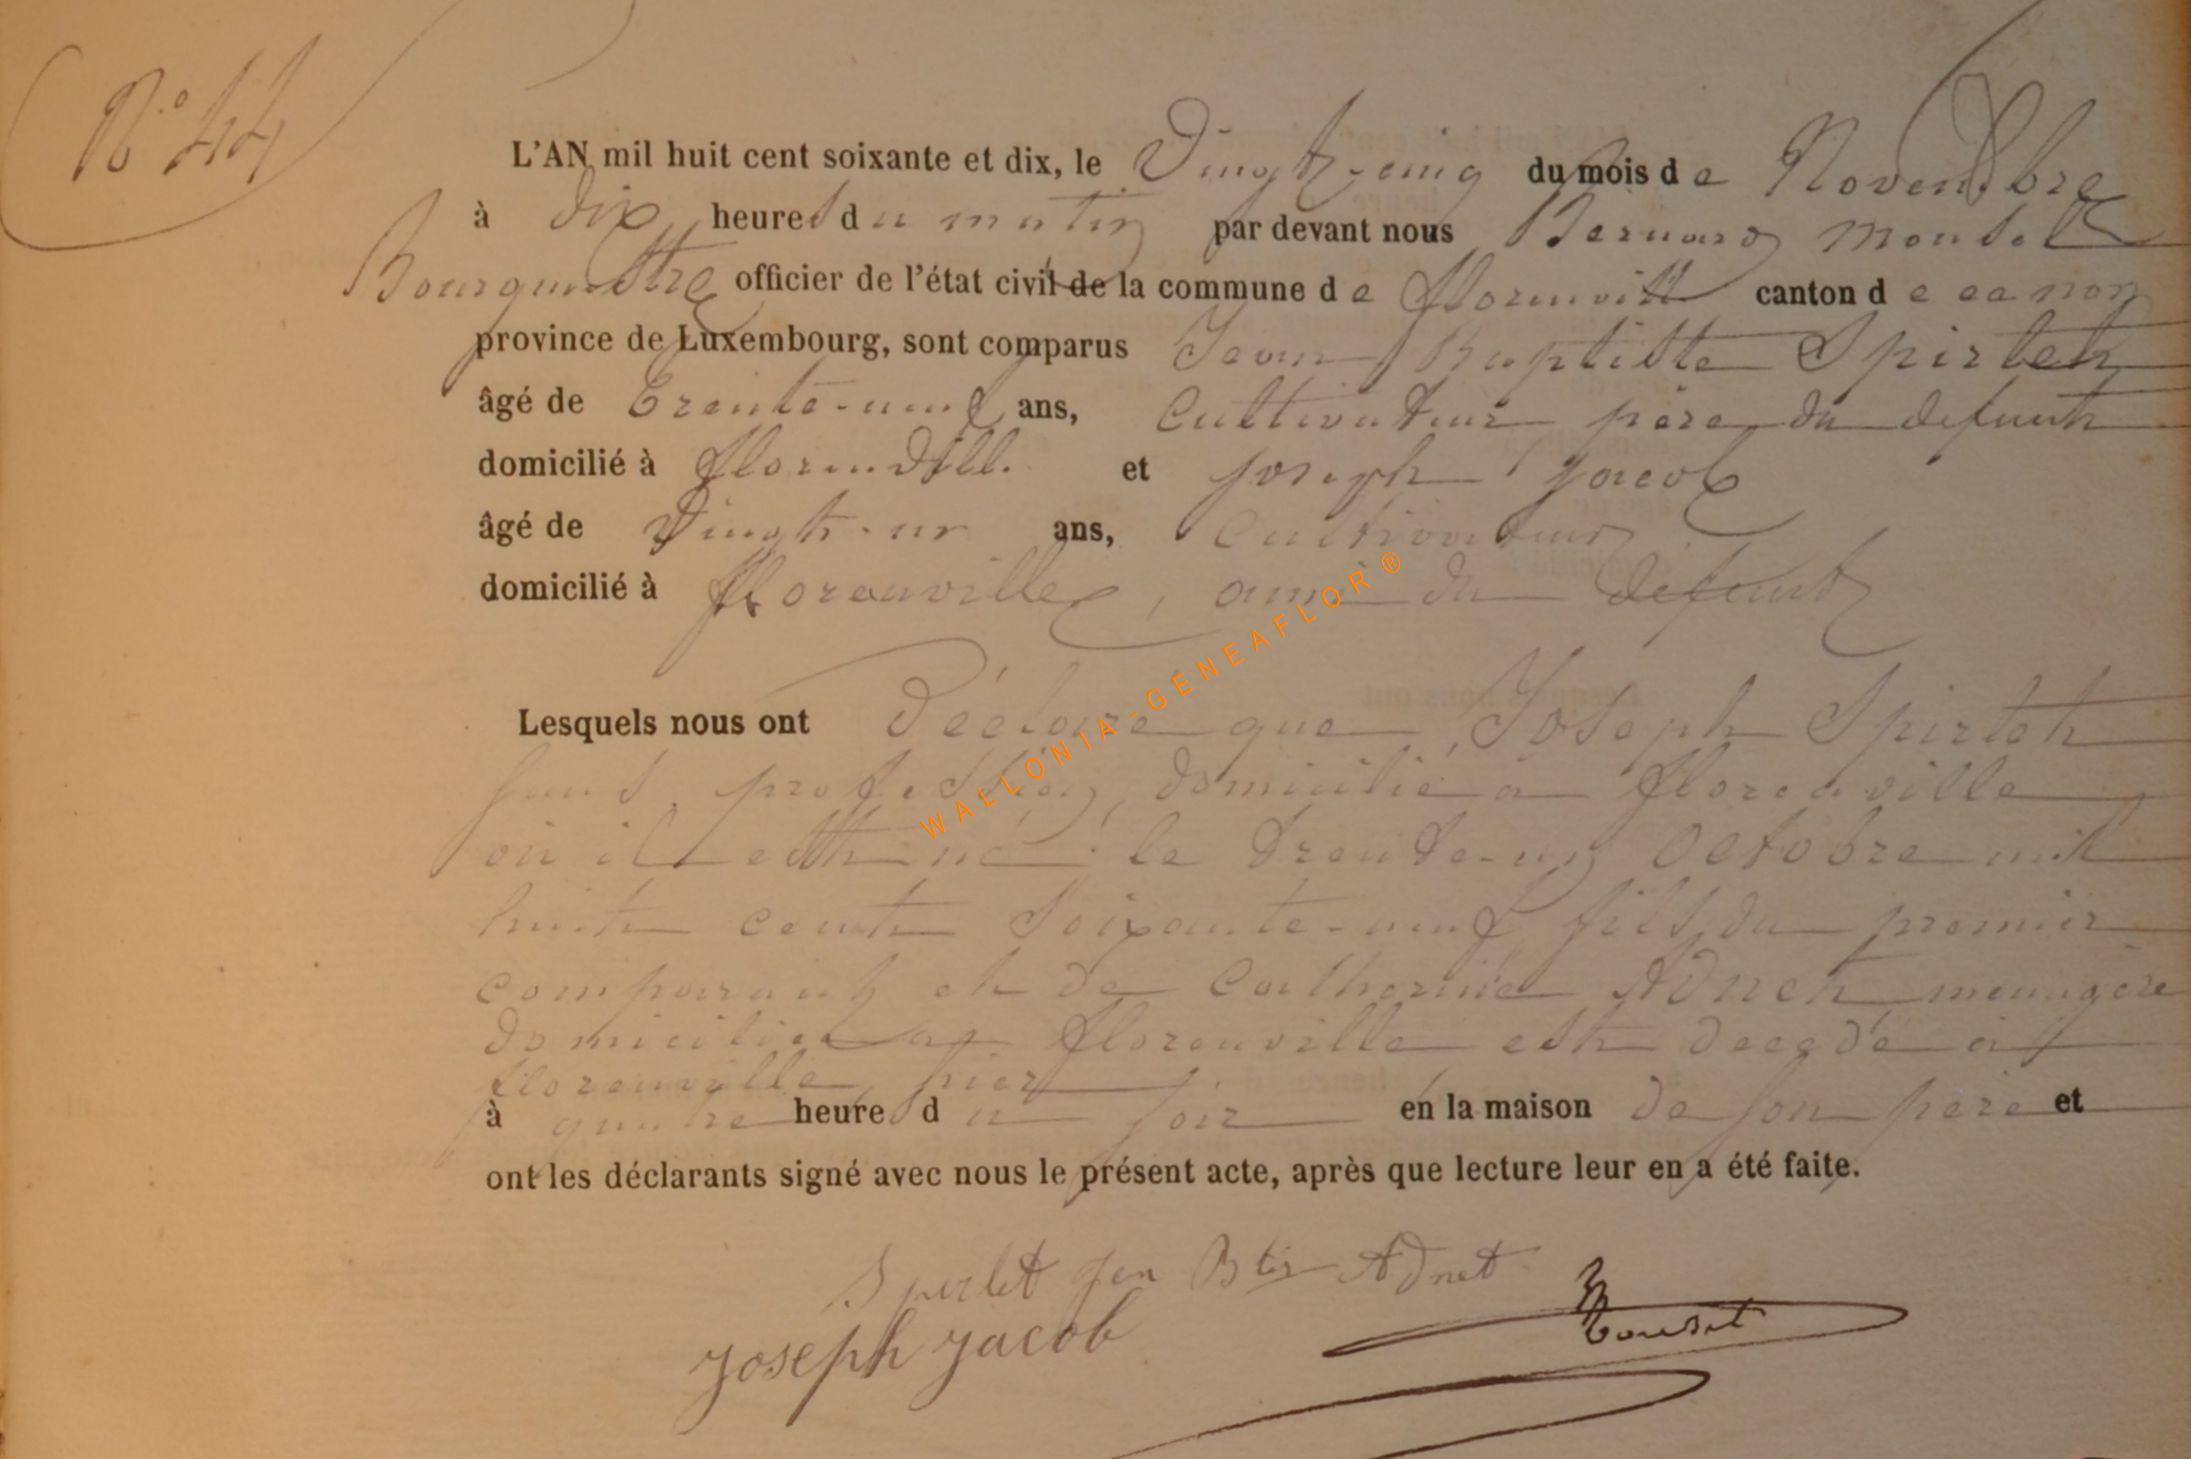 N° 44
L'AN mil huit cent soixante et dix, le Vingt-cinq du mois de Novembre
à dix heures du matin par devant nous Bernard Monset
Bourgmestre officier de l'état civil de la commune de florenville canton de ce nom
province de Luxembourg, sont comparus Jean Baptiste Spirlet
âgé de Trente-neuf ans, Cultivateur père du defunt
domicilié à florenville et joseph jacob
âgé de Vingt-un ans, Cultivateur
domicilié à florenville, ami du defunt
Lesquels nous ont Déclaré que Joseph Spirlet
sans profession, domicilié à florenville
où il est né le trente-un Octobre mil
huit cent soixante-neuf fils du premier
comparant et de Catherine Adnet menagère
domiciliée à florenville est decedé à
florenville hier
à quatre heures du soir en la maison de son père et
ont les déclarants signé avec nous le présent acte, après que lecture leur en a été faite.
Spirlet Jen Bte Adnet
Joseph Jacob
Monset
WALLONIA-GENEAFLOR®